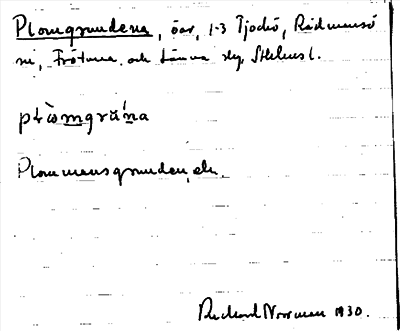 Plomgrundena, öar, 1-3 Tjockö, Rådmansö
sn, Frötuna och Länna skg. Sthlms l.
plòmgrúna
Plommonsgrunden, ek.
Richard Norrman 1930.